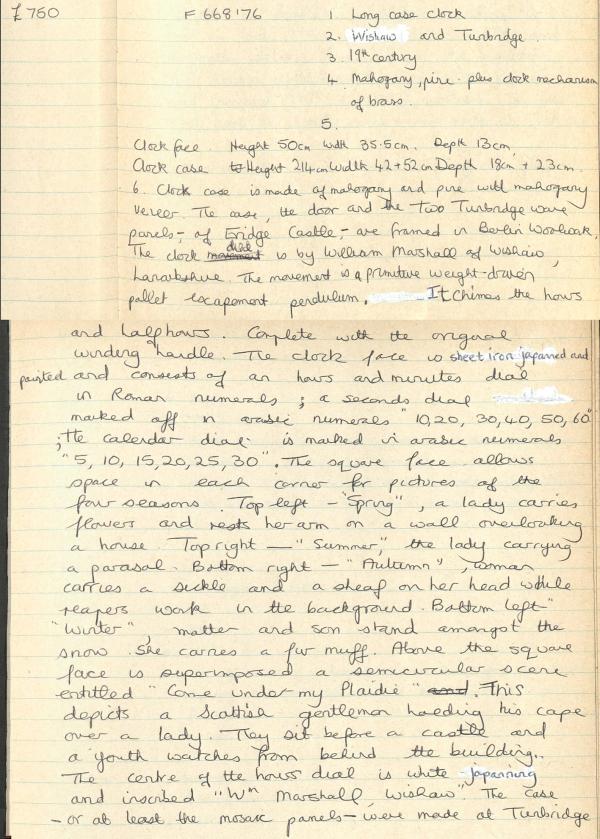 £750 F 668'76 1 Long case clock
2. Wishaw and Tunbridge.
3. 19th century
4. Mahogany, pine - plus clock mechanism
of brass.
5.
Clock face. Height 50cm Width 35.5cm. Depth 13cm.
Clock case Height 214cm Width 42+52cm Depth 18cm + 23cm.
6. Clock case is made of mahogany and pine with mahogany
veneer. The case, the door and the two Tunbridge ware
panels,- of Eridge Castle,- are framed in Berlin Woolwork.
The clock movement dial is by William Marshall of Wishaw,
Lanarkshire. The movement is a primitive weight-driven
pallet escapement pendulum. It chimes the hours
and halfhours. Complete with the original
winding handle. The clock face is sheet iron japanned and
painted and consists of an hours and minutes dial
in Roman numerals; a seconds dial
marked off in arabic numerals "10,20, 30,40, 50,60"
; the calendar dial is marked in arabic numerals
"5, 10, 15,20,25, 30". The square face allows
space in each corner for pictures of the
four seasons. Top left - "Spring", a lady carries
flowers and rests her arm on a wall overlooking
a house. Top right — "Summer," the lady carrying
a parasol. Bottom right — "Autumn", woman
carries a sickle and a sheaf on her head while
reapers work in the background. Bottom left "
"Winter", mother and son stand amongst the
snow. She carries a fur muff. Above the square
face is superimposed a semicircular scene
entitled "Come under my Plaidie" and. This
depicts a Scottish gentleman holding his cape
over a lady. They sit before a castle and
a youth watches from behind the building.
The centre of the hours dial is white japanning
and inscribed "Wm Marshall, Wishaw". The case
- or at least the mosaic panels - were made at Tunbridge